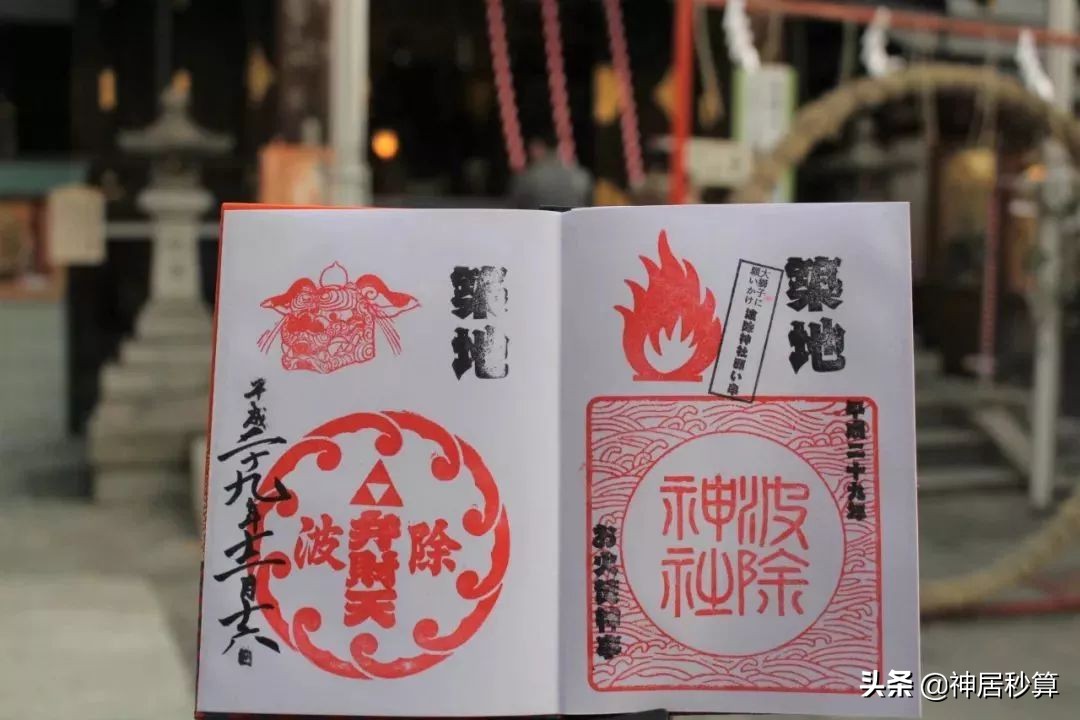 築地
平成二十九年十一月十八日
波 弁財天 除
築地
大獅子に
願いかけ
波除神社願い串
平成二十九年
波除
神社
お火焚神事
头条 @神居秒算